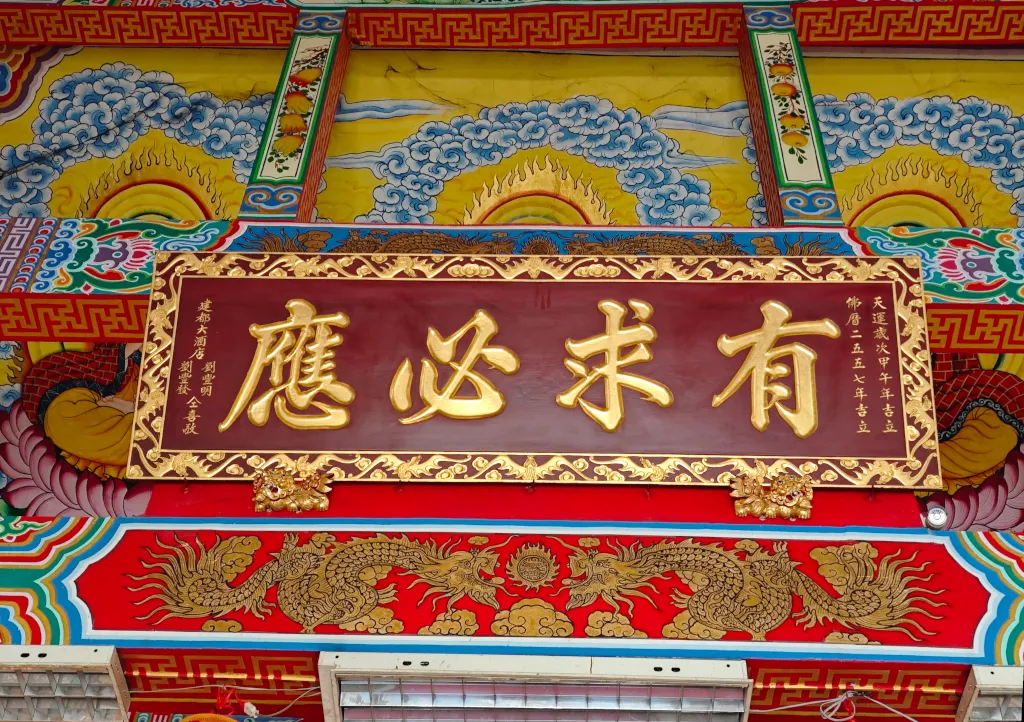 天運歲次甲午年吉立
佛曆二五五七年吉立
有求必應
建都大酒店
劉豐明
劉豐發
仝喜敬